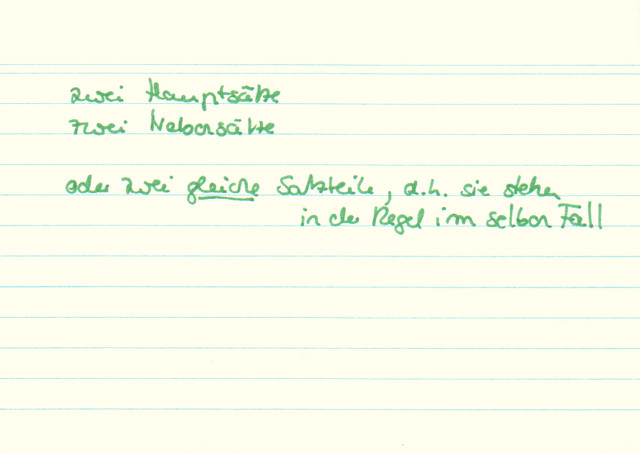 zwei Hauptsätze
zwei Nebensätze
oder zwei gleiche Satzteile, d.h. sie stehen
in der Regel im selben Fall